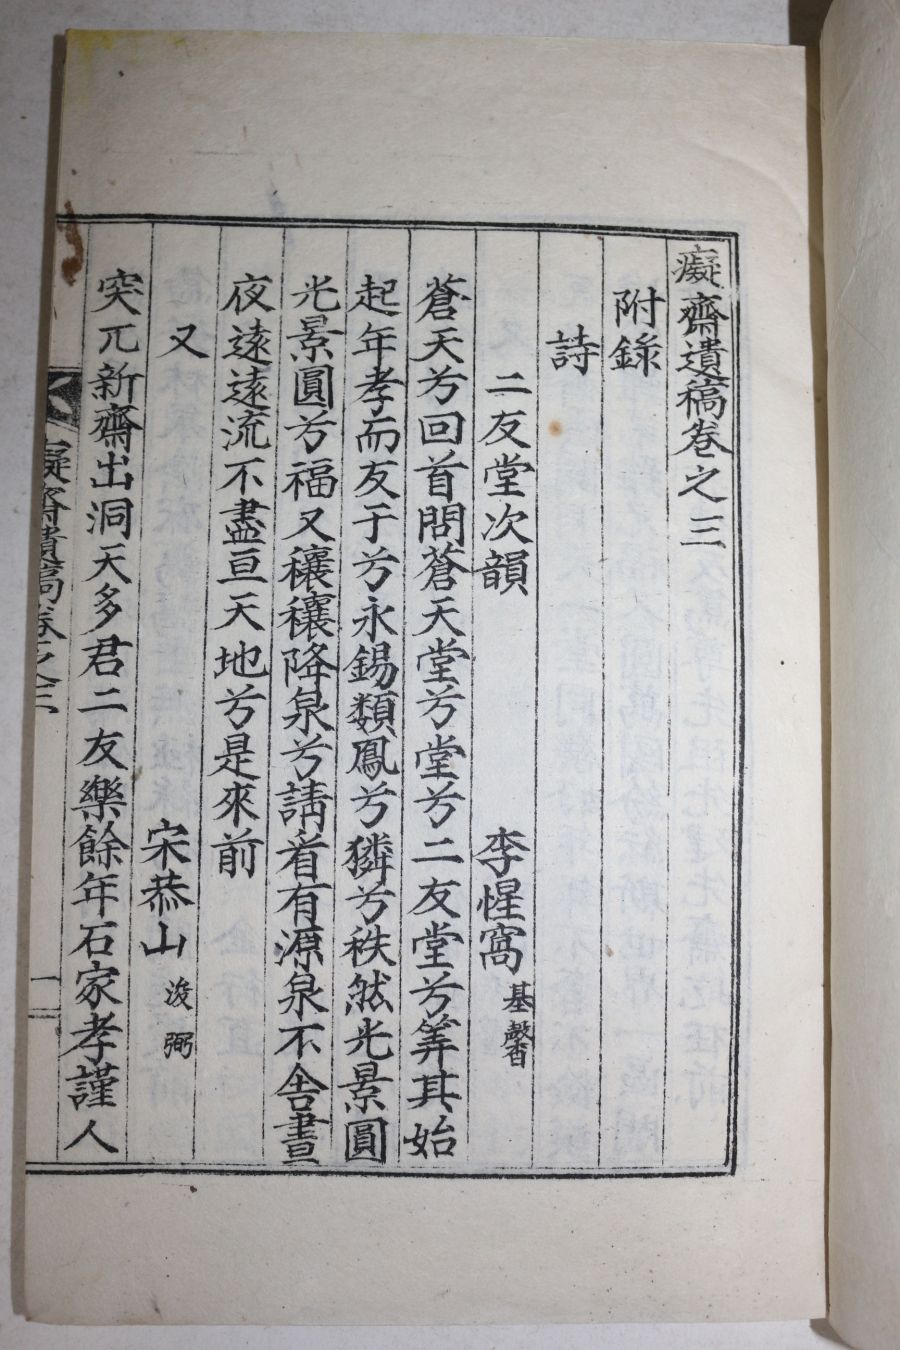 癡齋遺稿卷之三
附錄
詩
二友堂次韻 李惺窩 基馨
蒼天兮回首問蒼天堂兮堂兮二友堂兮筭其始
起年孝而友于兮永錫類鳳兮獜兮秩然光景圓
光景圓兮福又穰穰降泉兮請看有源泉不舍晝
夜遠遠流不盡亘天地兮是來前
又 宋恭山 浚弼
突兀新齋出洞天多君二友樂餘年石家孝謹人
癡齋遺稿卷之三 一